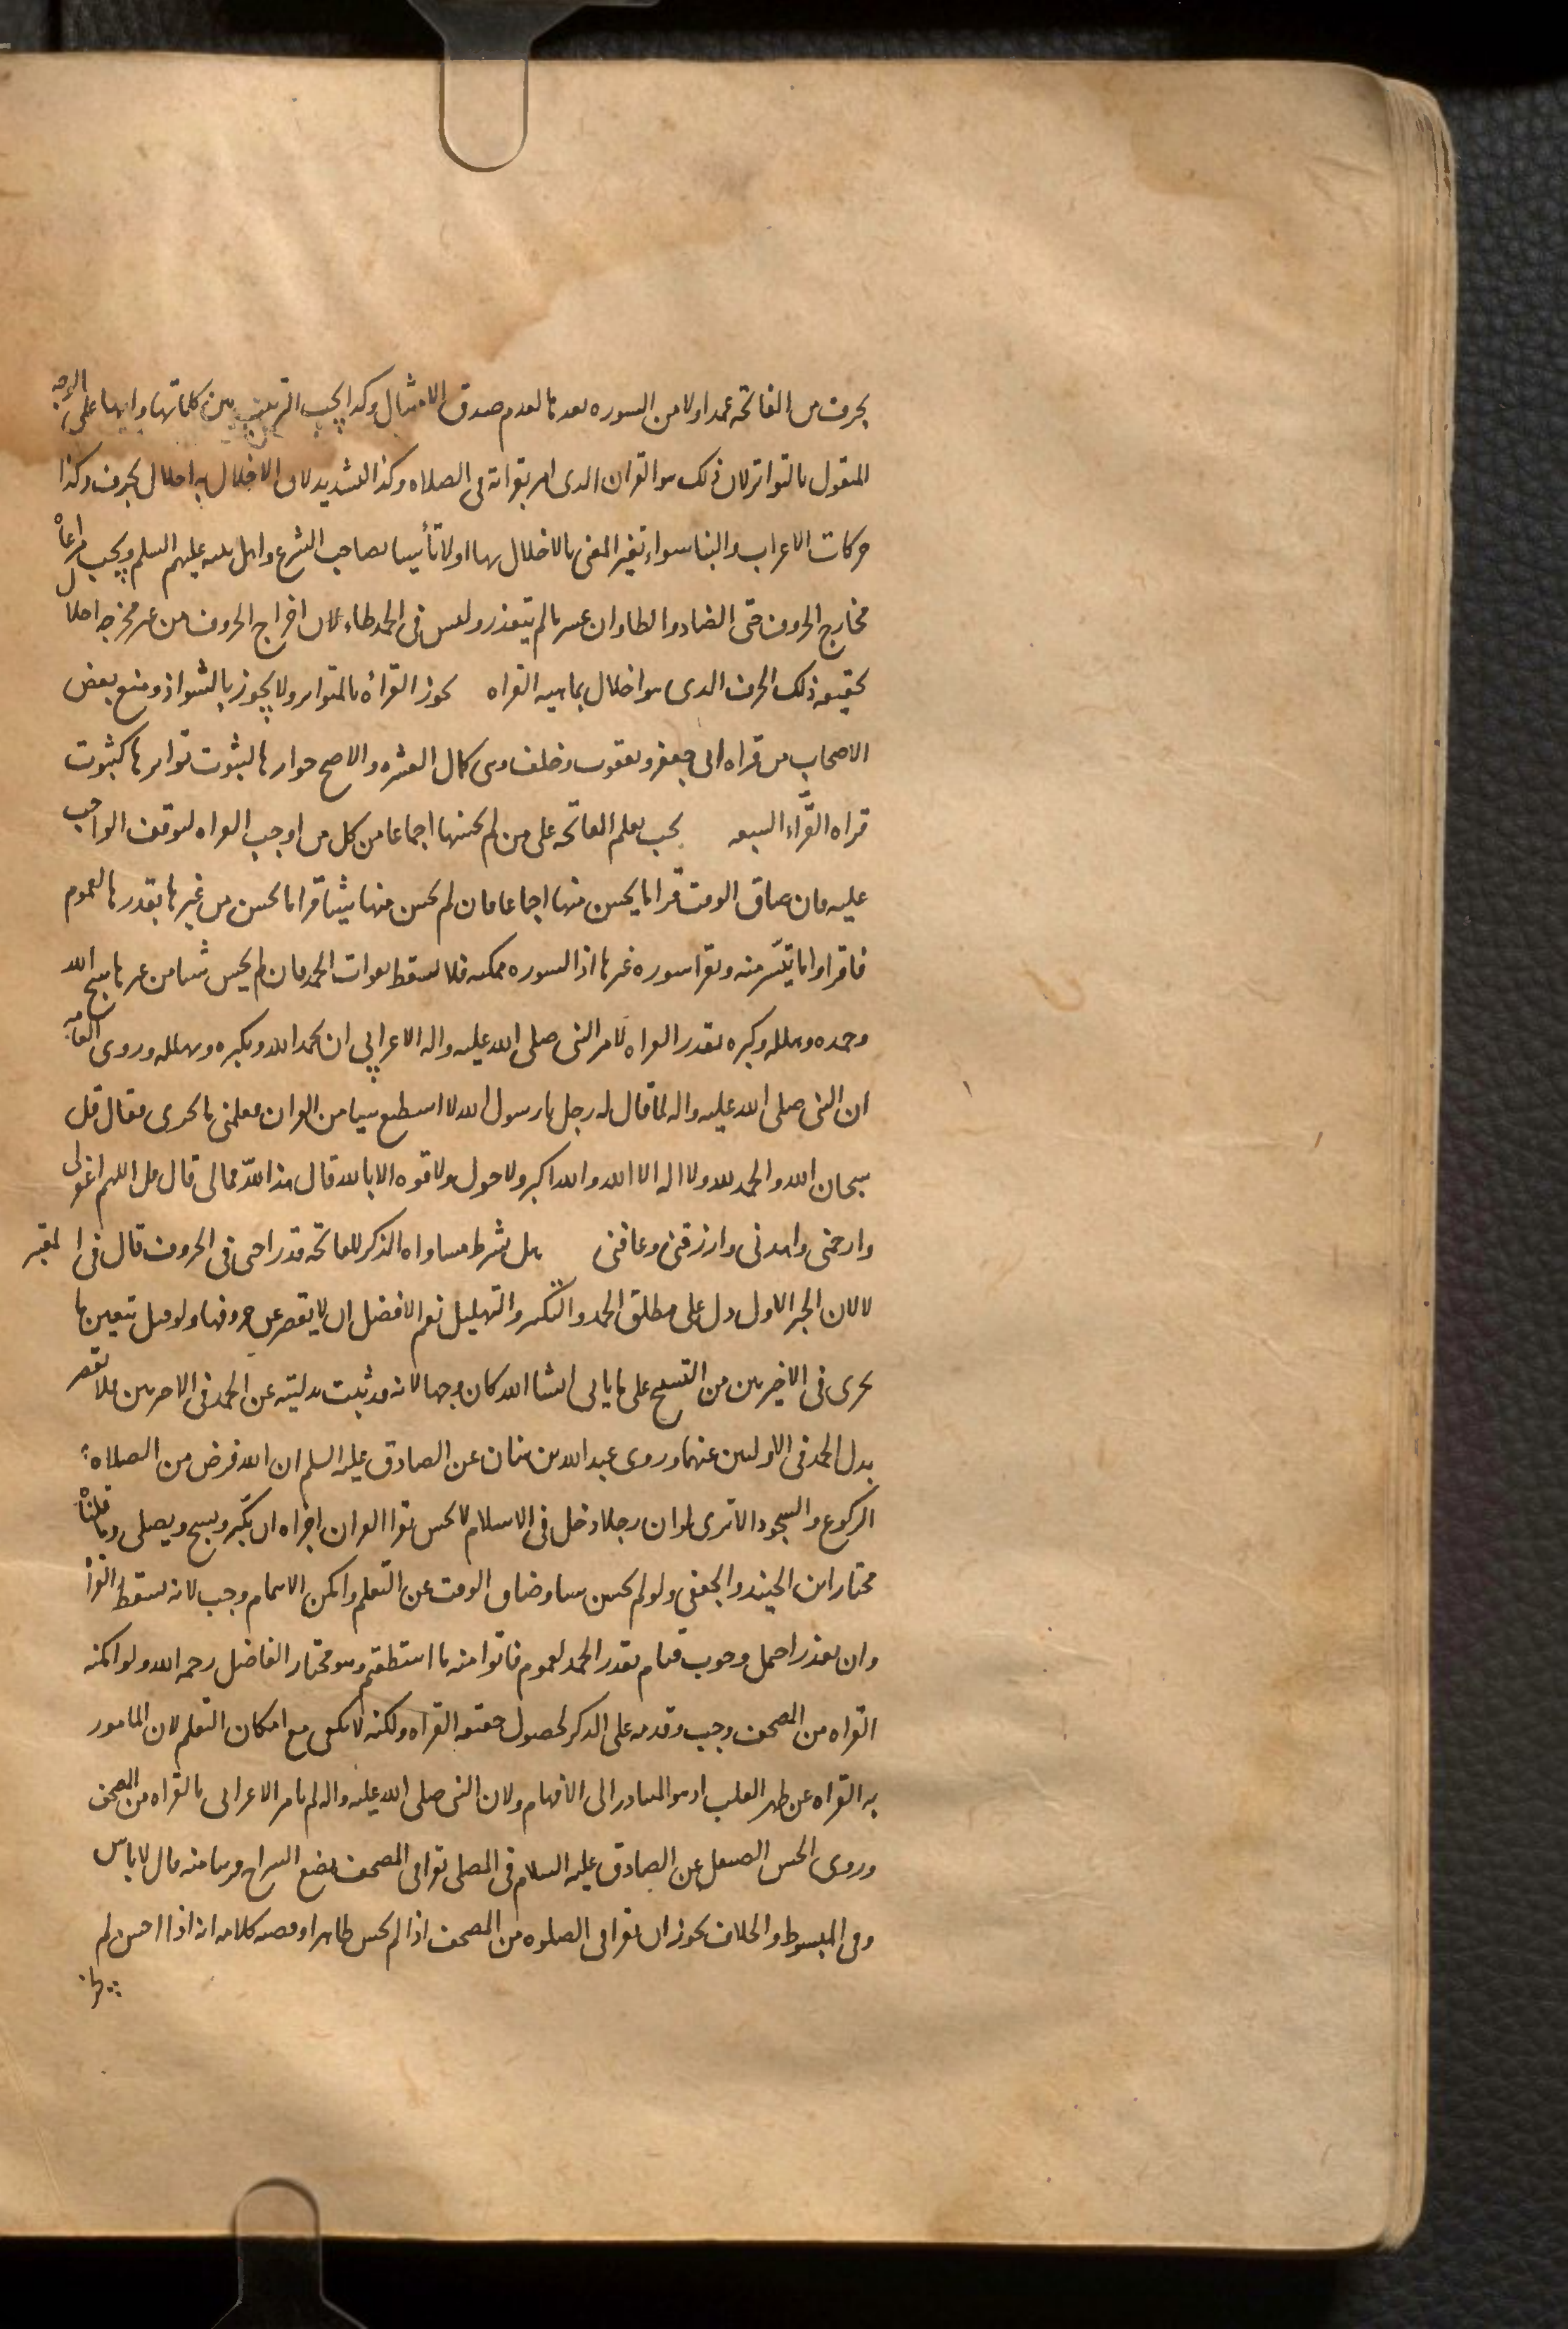 بحرف من الفاتحه عمدا ولا من السوره بعدها لعدم صدق الامتثال وكذا يجب الترتيب بين كلماتها وايها على الوجه
المنقول بالتواتر لان ذلك هو القران الذى امر بقراته فى الصلاه وكذا التشديد لان الاخلال به اخلال بحرف وكذا
حركات الاعراب والبنا سواء تغير المعنى بالاخلال بها او لا تأسيا بصاحب الشرع واهل بيته عليهم السلم ويجب مراعاة
مخارج الحروف حتى الضاد والظا وان عسر ما لم يتعذر وليس فى الحمد ظاء لان اخراج الحروف من غير مخرجه اخلال
بحقيقه ذلك الحرف الذى هو اخلال بماهيه القراه يجوز القراة بالمتواتر ولا يجوز بالشواذ ومنع بعض
الاصحاب من قراه ابى جعفر ويعقوب وخلف وهى كمال العشره والاصح جوازها لثبوت تواترها كثبوت
قراه القرّاء السبعه يجب تعلم الفاتحه على من لم يحسنها اجماعا من كل من اوجب القراه لتوقف الواجب
عليه فان ضاق الوقت قرا ما يحسن منها اجماعا فان لم يحسن منها شيئا قرا ما يحسن من غيرها بقدرها لعموم
فاقراوا ما تيسّر منه ويقرا سوره غيرها اذ السوره ممكنه فلا تسقط بفوات الحمد فان لم يحسن شيئا من غيرها سبح الله
وحمده وهلله وكبره بقدر القراه لامر النبى صلى الله عليه واله الاعرابي ان يحمد الله ويكبره ويهلله وروى العامه
ان النبى صلى الله عليه واله لما قال له رجل يا رسول الله لا استطيع شيئا من القران فعلمنى ما يجزى فقال قل
سبحان الله والحمد لله ولا اله الا الله والله اكبر ولا حول ولا قوه الا بالله قال هذا للّه فمالى قال قل اللهم اغفر لى
وارحمنى واهدنى وارزقنى وعافنى هل يشرط مساواه الذكر للفاتحه قدرا حتى فى الحروف قال فى المعتبر
لا لان الخبر الاول دل على مطلق الحمد والتكبير والتهليل نعم الافضل ان لا يقصر عن حروفها ولو قيل بتعين ما
يجزى فى الاخيرتين من التسبيح على ما ياتى انشا الله كان وجها لانه قد ثبت بدليته عن الحمد فى الاخرتين فلا تقصر
بدل الحمد فى الاوليين عنهما وروى عبد الله بن سنان عن الصادق عليه السلم ان الله فرض من الصلاه
الركوع والسجود الا ترى لو ان رجلا دخل فى الاسلام لا يحسن يقرا القران اجزاه ان يكبّر ويسبح ويصلى وما قلناه
مختار ابن الجنيد والجعفى ولو لم يحسن شيئا وضاق الوقت عن التعلم وامكن الائتمام وجب لانه يسقط القراة
وان تعذر احتمل وجوب قيام بقدر الحمد لعموم فاتوا منه ما استطعتم وهو مختار الفاضل رحمه الله ولو امكنه
القراه من المصحف وجب وقدمه على الذكر لحصول حقيقه القراه ولكنه لا يكفى مع امكان التعلم لان المامور
به القراه عن ظهر القلب اذ هو المتبادر الى الافهام ولان النبى صلى الله عليه واله لم يامر الاعرابى بالقراه من المصحف
وروى الحسن الصيقل عن الصادق عليه السلام فى المصلى يقرا فى المصحف يضع السراج قريبا منه قال لا باس
وفى المبسوط والخلاف يجوز ان يقرا فى الصلوه من المصحف اذا لم يحسن ظاهرا وقضيه كلامه انه اذا احسن لم